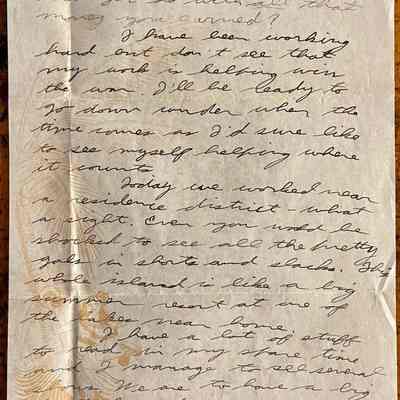 all that
money you earned?
I have been working
hard but don't see that
my work is helping win
the war. I'll be ready to
go down under when the
time comes as I'd sure like
to see myself helping where
it counts.
Today we worked near
a residence district - what
a sight. Even you would be
shocked to see all the pretty
gals in shorts and slacks. This
whole island is like a big
summer resort at one of
the lakes near home.
I have a lot of stuff
to read in my spare time
and I manage to see several
We are to have a big